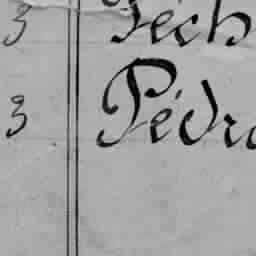 3 Pech
3 Pédro